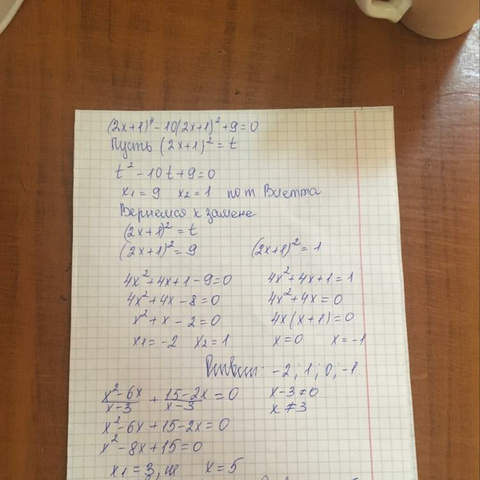 (2x+1)⁴-10(2x+1)²+9=0
Пусть (2x+1)²=t
t²-10t+9=0
x₁=9 x₂=1 по т Виетта
Вернемся к замене
(2x+1)²=t
(2x+1)²=9 (2x+1)²=1
4x²+4x+1-9=0 4x²+4x+1=1
4x²+4x-8=0 4x²+4x=0
x²+x-2=0 4x(x+1)=0
x₁=-2 x₂=1 x=0 x=-1
Ответ: -2; 1; 0; -1
(x²-6x)/(x-3) + (15-2x)/(x-3) =0 x-3≠0
x≠3
x²-6x+15-2x=0
x²-8x+15=0
x₁=3, x=5